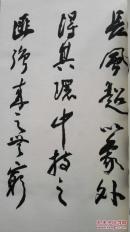 長風超以象外
得其環中持之
匪強来之無窮